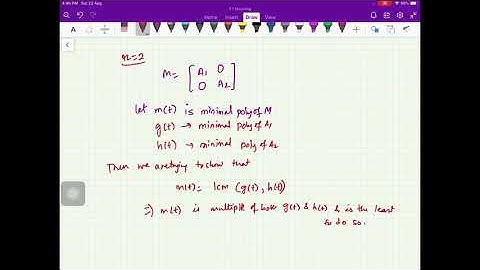 4:46 PM Sat 22 Aug
Home Insert Draw View
n=2
M = [ A1 0
0 A2 ]
Let m(t) is minimal poly of M
g(t) → minimal poly of A1
h(t) → minimal poly of A2
Then we are trying to show that
m(t) = lcm (g(t), h(t))
⇒ m(t) is multiple of both g(t) & h(t) & is the least
to do so.